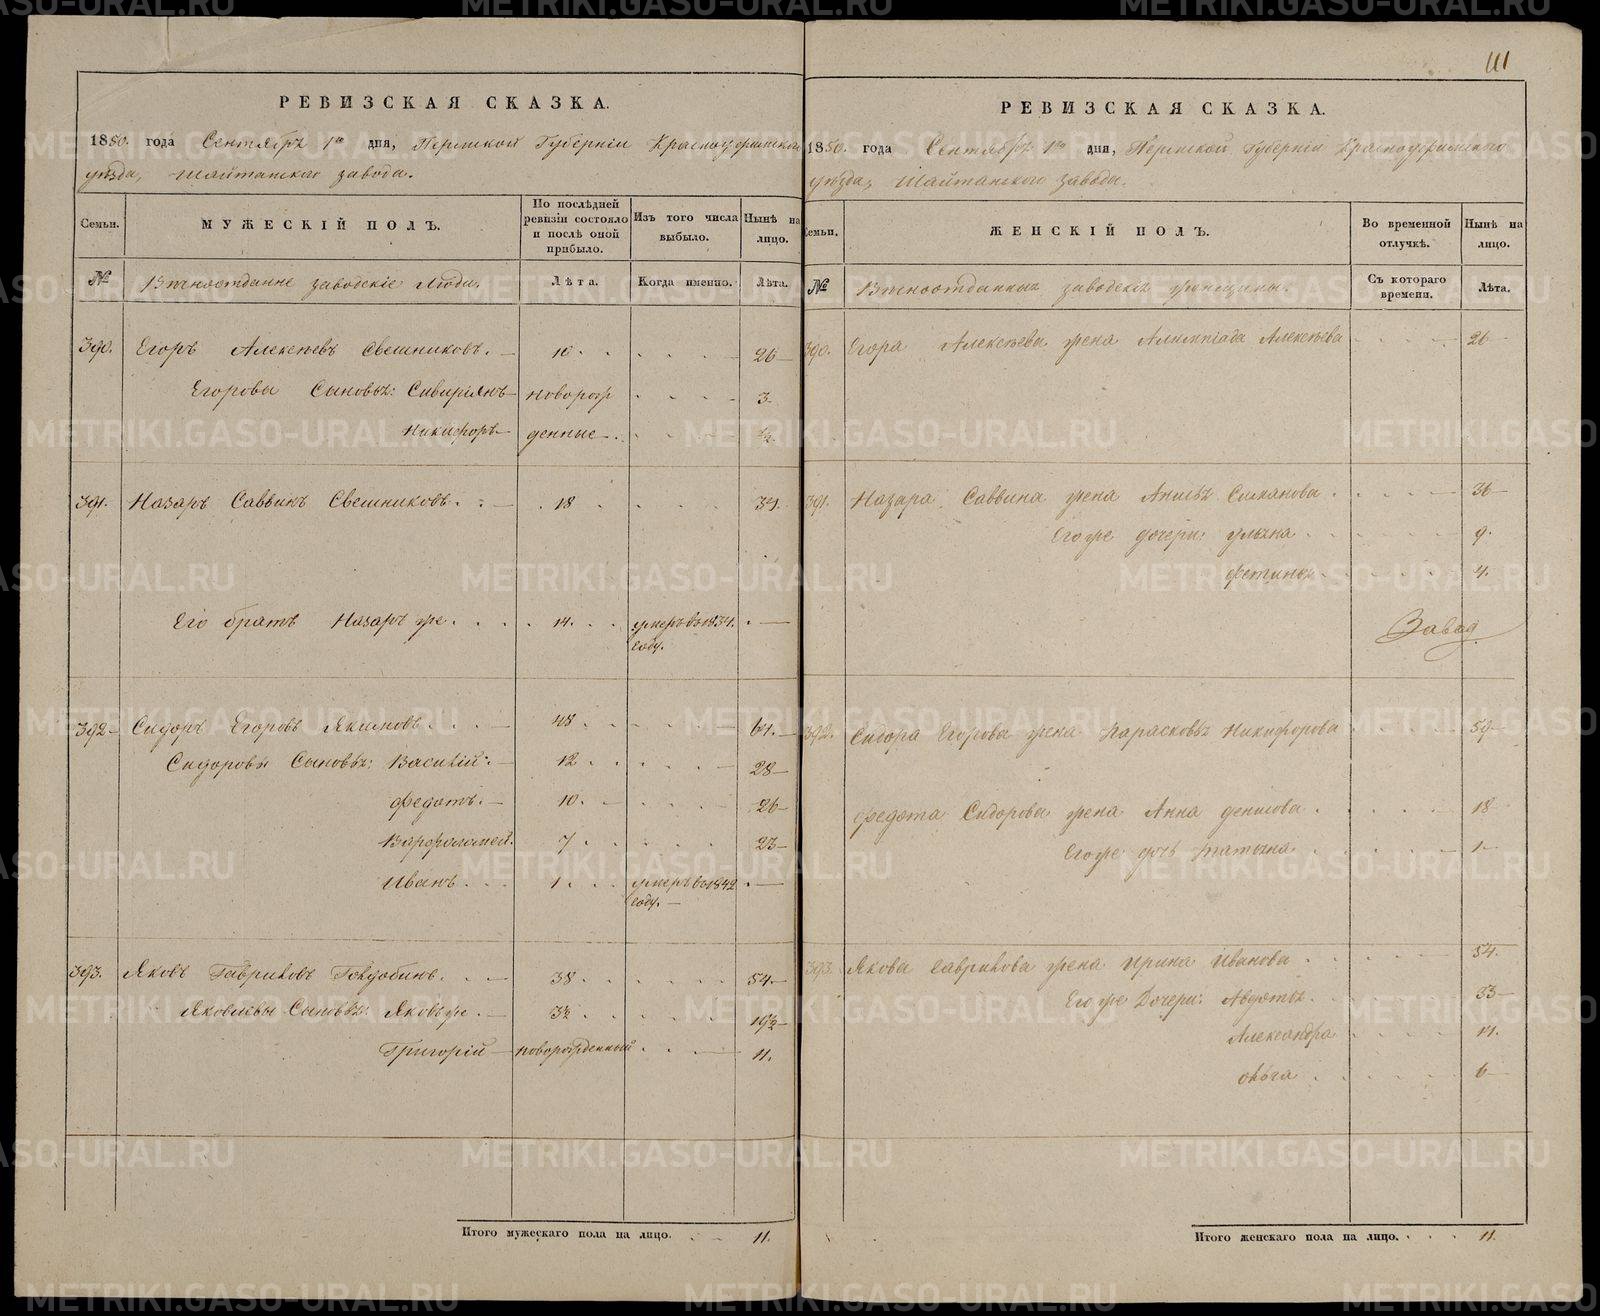 111
РЕВИЗСКАЯ СКАЗКА.
1850. года Сентября 1го дня, Пермской Губерніи Красноуфимскаго
уѣзда, Шайтанскаго завода.
Семьи.
МУЖЕСКІЙ ПОЛЪ.
По послѣдней ревизіи состояло и послѣ оной прибыло.
Изъ того числа выбыло.
Нынѣ на лицо.
№
заводскіе Люди.
Лѣта.
Когда именно.
Лѣта.
390. Егоръ Алексѣевъ Свешниковъ. 10. 26
Егоровы Сыновья: новорож 3
Никифоръ денные. ½
391. Назаръ Саввинъ Свешниковъ. 18 34.
Его братъ Назаръ же. 14. умеръ въ 1834. году.
392 Сидоръ Егоровъ Якимовъ. 48 64.
Сидоровы Сыновья: Василій. 12 28
Федотъ. 10. 26
Варфоломей. 7 23
Иванъ. 1. умеръ въ 1842 году.
393. Яковъ Гавриловъ 38 54
Яковлевы Сыновья: Яковъ же. 3½ 19½
Григорій новорожденный 11.
Итого мужескаго пола на лицо. 11.
РЕВИЗСКАЯ СКАЗКА.
1850. года Сентября 1го дня, Пермской Губерніи Красноуфимскаго
уѣзда, Шайтанскаго завода.
Семьи.
ЖЕНСКІЙ ПОЛЪ.
Во временной отлучкѣ.
Нынѣ на лицо.
№
заводскія женщины.
Съ котораго времени.
Лѣта.
390. Егора Алексѣева жена Алимпіада Алексѣева 26
391. Назара Саввина жена 36
Его же дочери: Ульяна 9.
Фетинья 4.
Завод
392. Сидора Егорова жена Парасковья Никифорова 59
Федота Сидорова жена Анна Денисова 18
Его же дочь Татьяна. 1
393. Якова Гаврилова жена Ирина Иванова 54.
Его же Дочери: Авдотья. 33
Александра
Ольга 6
Итого женскаго пола на лицо. 11.
METRIKI.GASO-URAL.RU